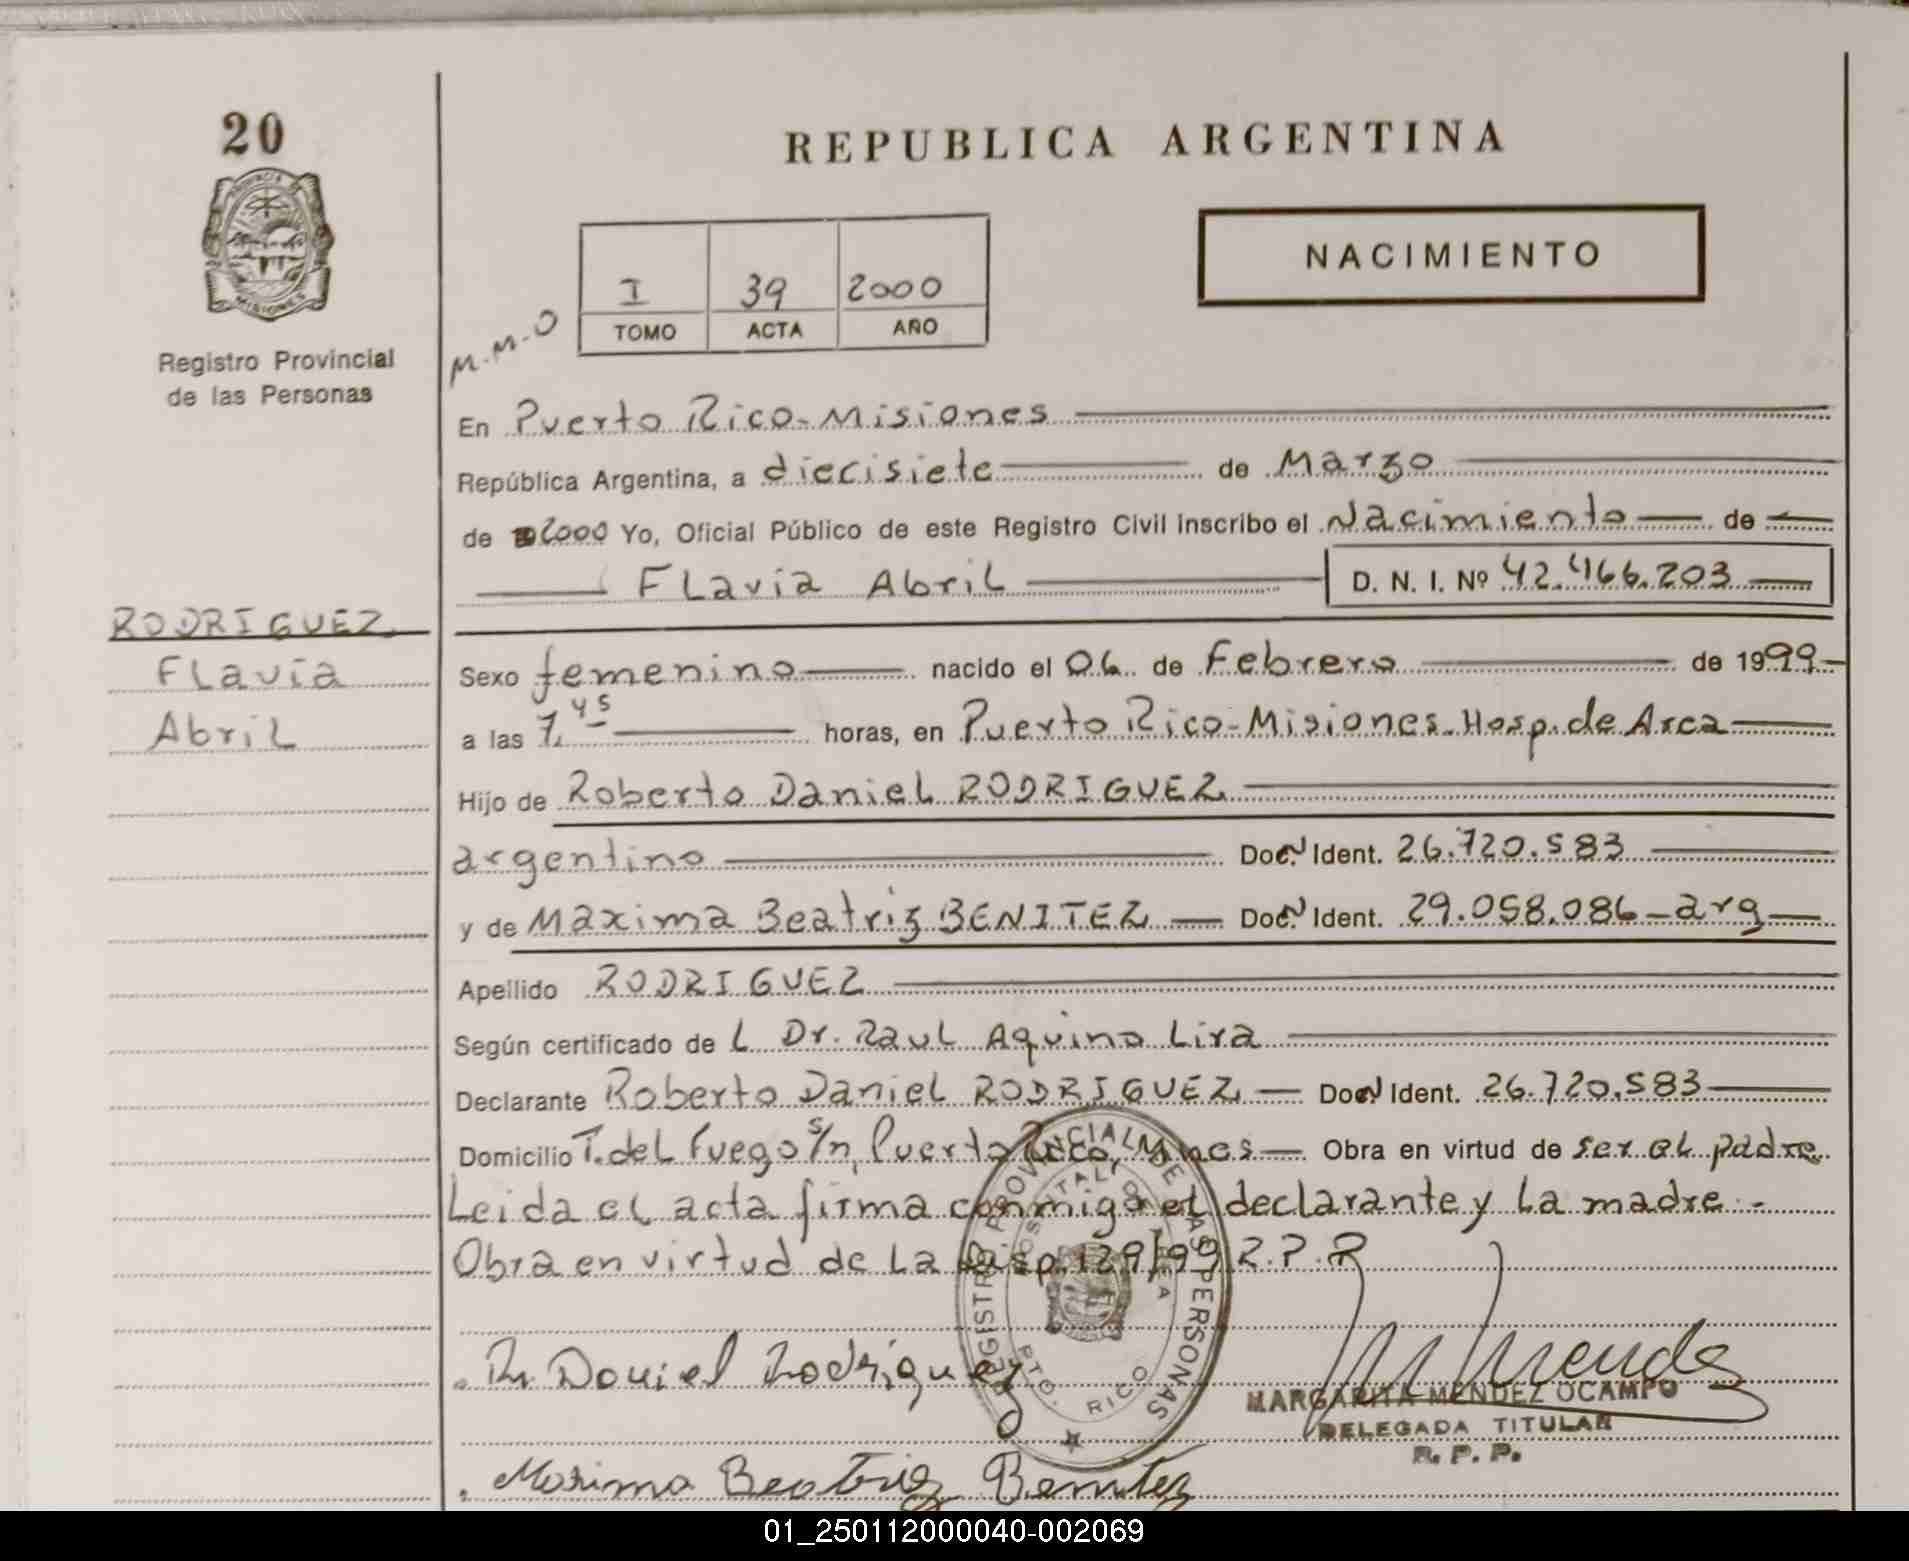 20
REPUBLICA ARGENTINA
PROVINCIA DE
MISIONES
NACIMIENTO
I 39 2000
TOMO ACTA AÑO
M.M.O
Registro Provincial
de las Personas
En Puerto Rico-Misiones
República Argentina, a diecisiete de Marzo
de 2000 Yo, Oficial Público de este Registro Civil inscribo el Nacimiento de
Flavia Abril D. N. I. Nº 42.466.203
RODRIGUEZ
Flavia
Abril
Sexo femenino nacido el 06 de Febrero de 1999
a las 7,45 horas, en Puerto Rico-Misiones-Hosp.de Area
Hijo de Roberto Daniel RODRIGUEZ
argentino Doc. Ident. 26.720.583
y de Maxima Beatriz BENITEZ Doc. Ident. 29.058.086-arg
Apellido RODRIGUEZ
Según certificado de L Dr. Raul Aquino Lira
Declarante Roberto Daniel RODRIGUEZ Doc. Ident. 26.720.583
Domicilio T.del Fuego s/n, Puerto Rico, Mnes Obra en virtud de ser el padre
Leida el acta firma conmigo el declarante y la madre.-
Obra en virtud de la Disp.129/99 R.P.P
REGISTRO PROVINCIAL DE LAS PERSONAS
HOSPITAL DE AREA
PTO. RICO
R. Daniel Rodriguez
M Mendez
MARGARITA MENDEZ OCAMPO
DELEGADA TITULAR
R. P. P.
Maxima Beatriz Benitez
01_250112000040-002069